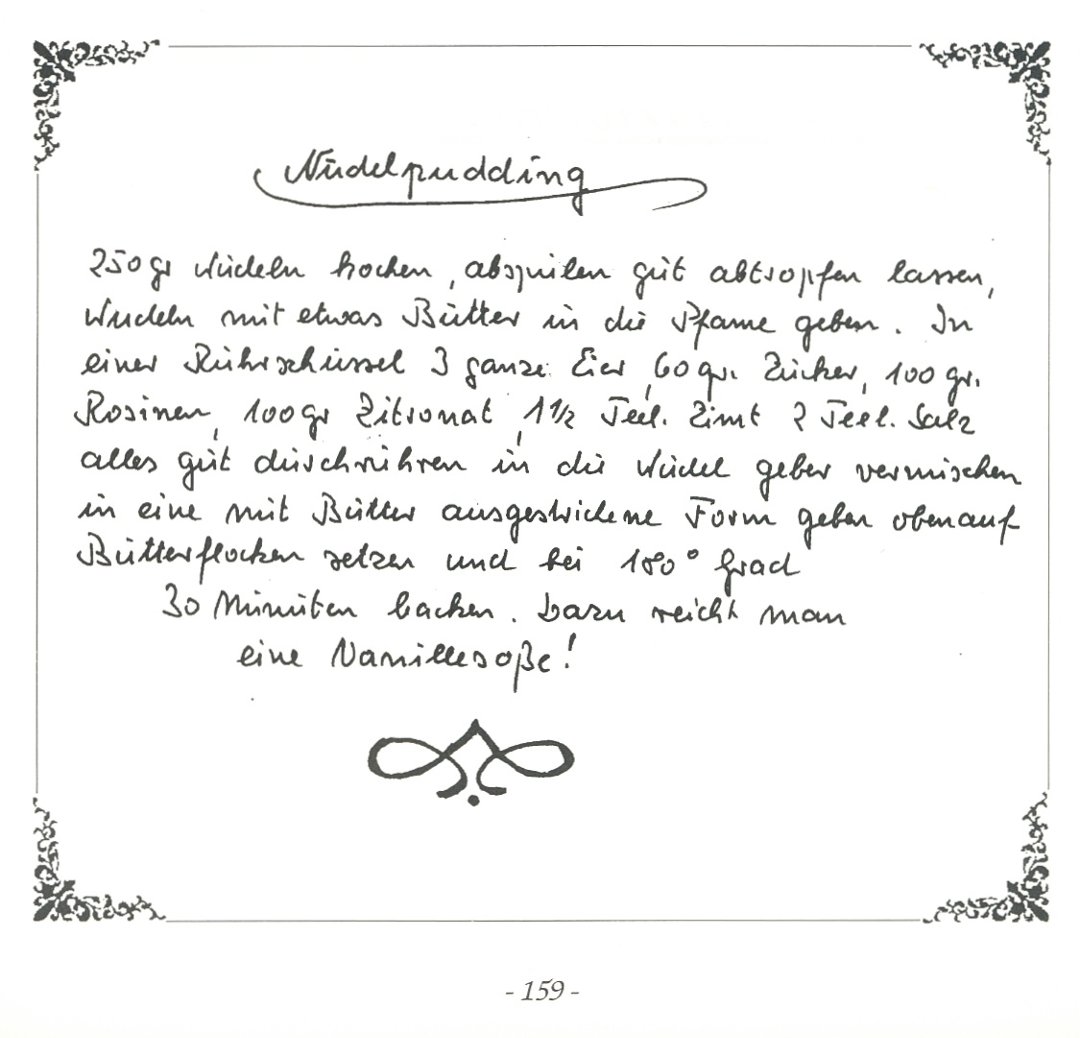 Nudelpudding
250 gr Nudeln kochen, abspülen gut abtropfen lassen,
Nudeln mit etwas Butter in die Pfanne geben. In
einer Rührschüssel 3 ganze Eier, 60 gr. Zucker, 100 gr.
Rosinen, 100 gr Zitronat, 1 1/2 Teel. Zimt 2 Teel. Salz
alles gut durchrühren in die Nudel geben vermischen
in eine mit Butter ausgestrichene Form geben obenauf
Butterflocken setzen und bei 180° Grad
30 Minuten backen. Dazu reicht man
eine Vanillesoße!
- 159 -